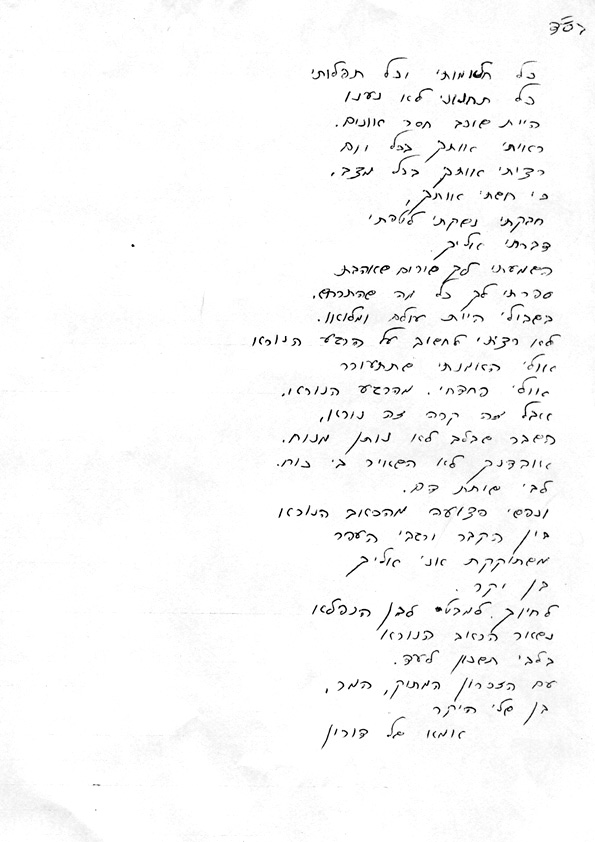 בס"ד
כל חלומותי וכל תפלותי
כל תחנוני לא נענו
היית שוכב חסר אונים.
ראיתי אותך בכל יום
רציתי אותך בכל מצב,
כי חשתי אותך,
חבקתי נשקתי לטפתי
דברתי אליך
השמעתי לך שירים שאהבת
ספרתי לך כל מה שהתרחש.
בשבילי היית עולם ומלואו.
לא רציתי לחשוב על הרגע הנורא
אולי האמנתי שתתעורר
אולי פחדתי. מהרגע הנורא,
אבל זה קרה זה נורא,
השבר שבלב לא נותן מנוח.
אובדנך לא השאיר בי כוח.
לבי שותת דם.
ונפשי פצועה מהכאב הנורא
בין הקבר ורגבי העפר
משתוקקת אני אליך
בן יקר.
לחיוך למבט לבן הנפלא
נשאר הכאב הנורא
בלבי תשכון לעד.
עם הזכרון המתוק, המר,
בן שלי היקר
אמא של דורון